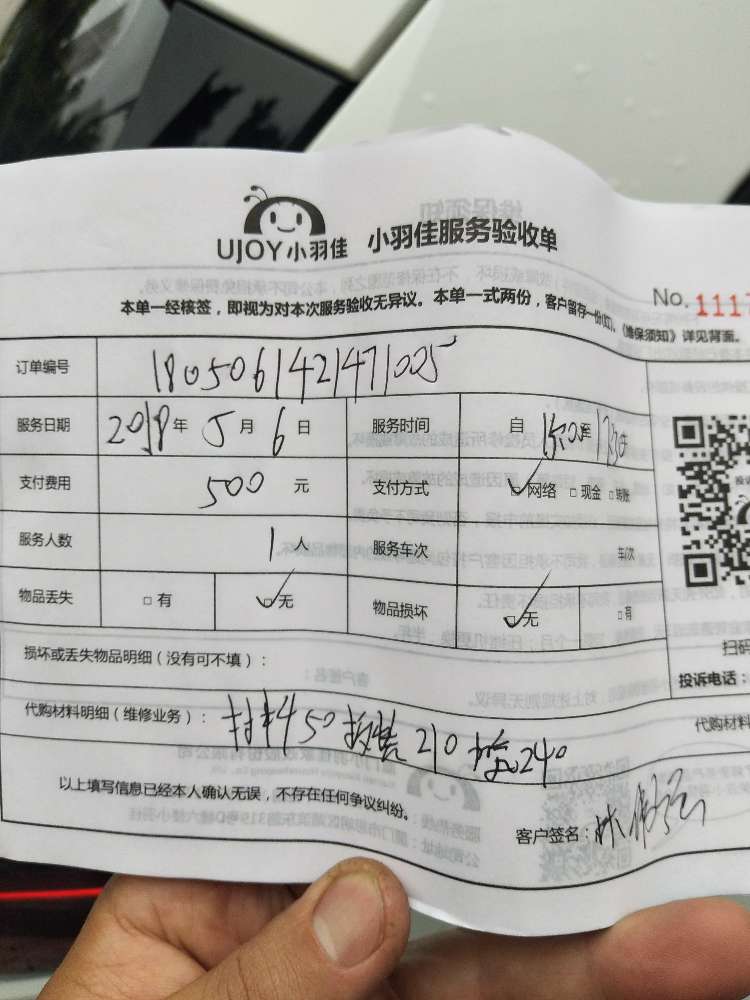 UJOY小羽佳 小羽佳服务验收单
No. 1117
本单一经核签，即视为对本次服务验收无异议。本单一式两份，客户留存一份(红)。《维保须知》详见背面。
订单编号 180506142471005
服务日期 2018年 5月 6日 服务时间 自
支付费用 500 元 支付方式 网络 □现金 □转账
服务人数 1人 服务车次 车/次
物品丢失 □有 无 物品损坏 无 □有
损坏或丢失物品明细（没有可不填）：
扫码
投诉电话：
代购材料明细（维修业务）： 材料50 210 240
代购材料
以上填写信息已经本人确认无误，不存在任何争议纠纷。
客户签名：林